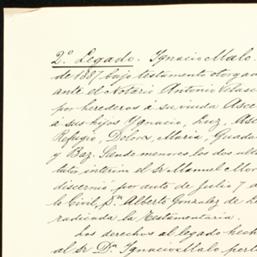 2º Legado. Ignacio Malo.
de 1887 bajo testamento otorgad
ante el Notario Antonio Velasc
por herederos á su viuda Asce
á sus hijos Ygnacio, Luz, Asc
Refugio, Dolores, Maria, Guada
y Baz. Siendo menores los dos ult
tuto, interim el Sr Manuel Mor
discernió por auto de Julio 7 a
lo Civil, Dn Alberto Gonzalez de L
radicada la Testamentaria.
Los derechos al legado hech
al Sr Dn Ignacio Malo perte